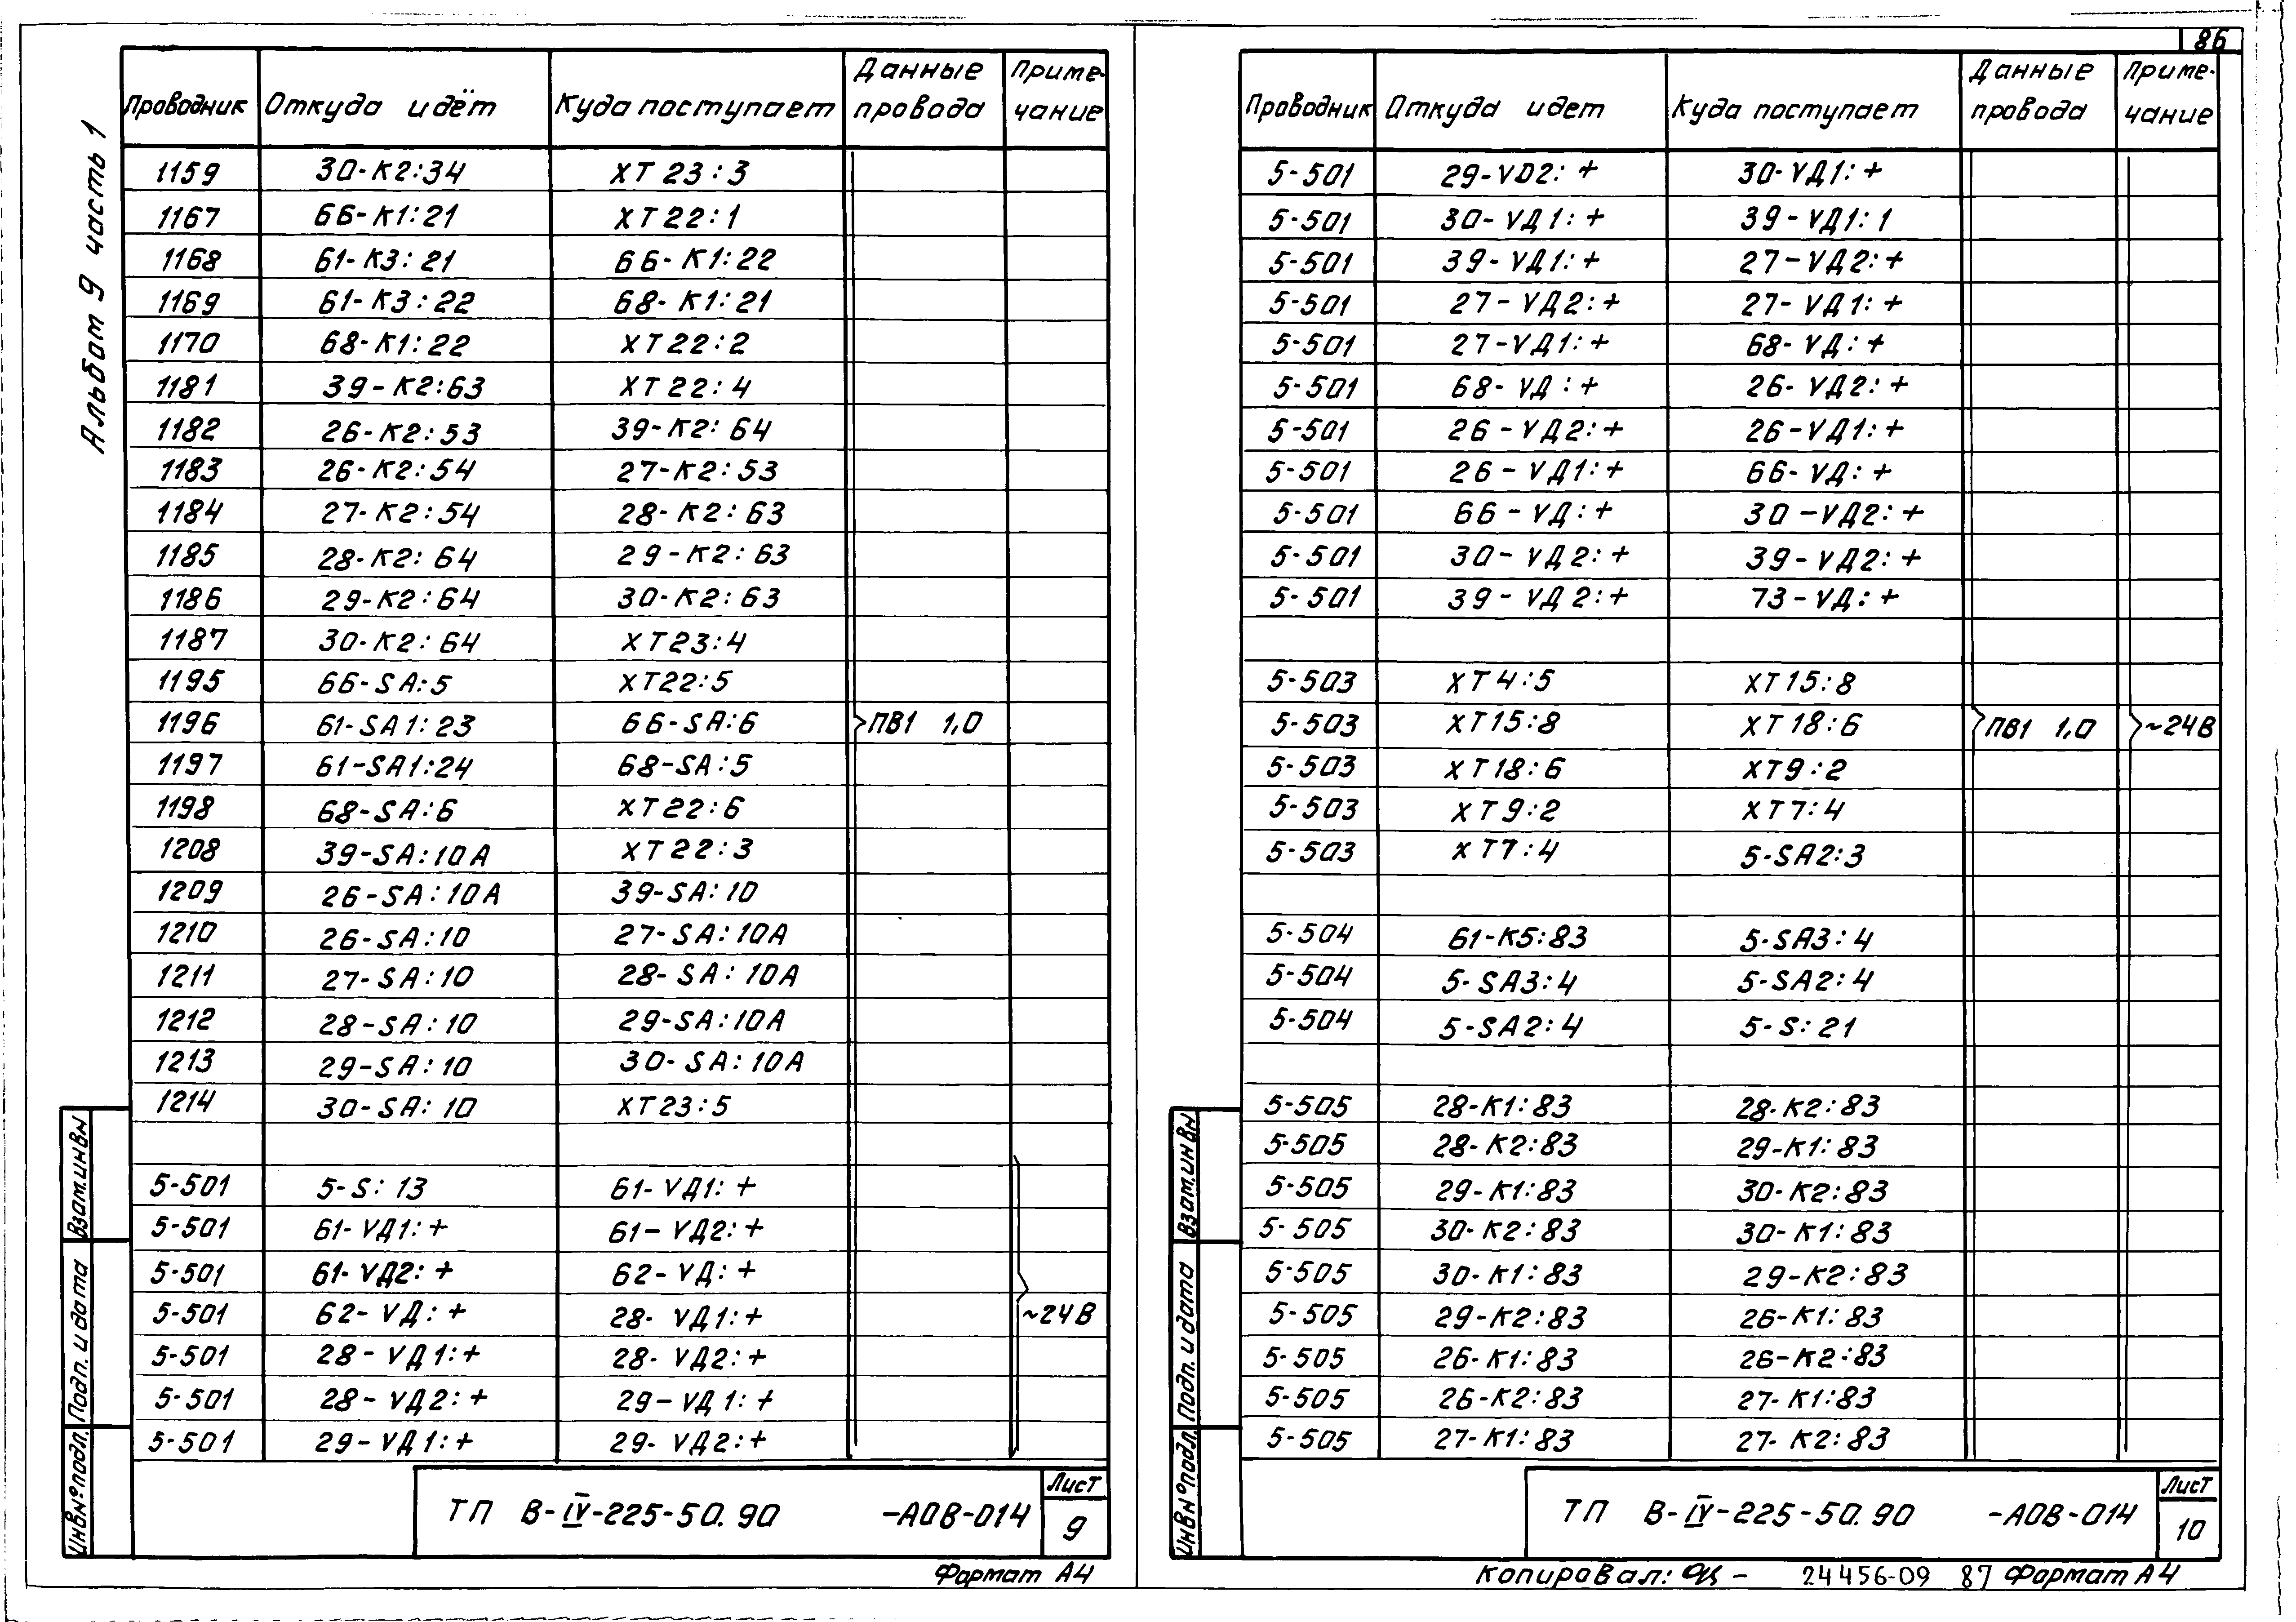 86
Альбом 9 часть 1
Проводник Откуда идёт Куда поступает Данные провода Приме-чание
1159 30-К2:34 ХТ23:3
1167 66-К1:21 ХТ22:1
1168 61-К3:21 66-К1:22
1169 61-К3:22 68-К1:21
1170 68-К1:22 ХТ22:2
1181 39-К2:63 ХТ22:4
1182 26-К2:53 39-К2:64
1183 26-К2:54 27-К2:53
1184 27-К2:54 28-К2:63
1185 28-К2:64 29-К2:63
1186 29-К2:64 30-К2:63
1187 30-К2:64 ХТ23:4
1195 66-SA:5 ХТ22:5
1196 61-SA1:23 66-SA:6 ПВ1 1,0
1197 61-SA1:24 68-SA:5
1198 68-SA:6 ХТ22:6
1208 39-SA:10А ХТ22:3
1209 26-SA:10А 39-SA:10
1210 26-SA:10 27-SA:10А
1211 27-SA:10 28-SA:10А
1212 28-SA:10 29-SA:10А
1213 29-SA:10 30-SA:10А
1214 30-SA:10 ХТ23:5
5-501 5-S:13 61-VД1:+
5-501 61-VД1:+ 61-VД2:+
5-501 61-VД2:+ 62-VД:+
5-501 62-VД:+ 28-VД1:+ ~24В
5-501 28-VД1:+ 28-VД2:+
5-501 28-VД2:+ 29-VД1:+
5-501 29-VД1:+ 29-VД2:+
Взам.инв№
Подп. и дата
Инв№подл.
ТП В-IV-225-50.90 -АОВ-014 Лист 9
Формат А4
Проводник Откуда идет Куда поступает Данные провода Приме-чание
5-501 29-VD2:+ 30-VД1:+
5-501 30-VД1:+ 39-VД1:1
5-501 39-VД1:+ 27-VД2:+
5-501 27-VД2:+ 27-VД1:+
5-501 27-VД1:+ 68-VД:+
5-501 68-VД:+ 26-VД2:+
5-501 26-VД2:+ 26-VД1:+
5-501 26-VД1:+ 66-VД:+
5-501 66-VД:+ 30-VД2:+
5-501 30-VД2:+ 39-VД2:+
5-501 39-VД2:+ 73-VД:+
5-503 ХТ4:5 ХТ15:8
5-503 ХТ15:8 ХТ18:6 ПВ1 1,0 ~24В
5-503 ХТ18:6 ХТ9:2
5-503 ХТ9:2 ХТ7:4
5-503 ХТ7:4 5-SA2:3
5-504 61-К5:83 5-SA3:4
5-504 5-SA3:4 5-SA2:4
5-504 5-SA2:4 5-S:21
5-505 28-К1:83 28-К2:83
5-505 28-К2:83 29-К1:83
5-505 29-К1:83 30-К2:83
5-505 30-К2:83 30-К1:83
5-505 30-К1:83 29-К2:83
5-505 29-К2:83 26-К1:83
5-505 26-К1:83 26-К2:83
5-505 26-К2:83 27-К1:83
5-505 27-К1:83 27-К2:83
Взам.инв№
Подп. и дата
Инв№подл.
ТП В-IV-225-50.90 -АОВ-014 Лист 10
Копировал: 24456-09 87 Формат А4